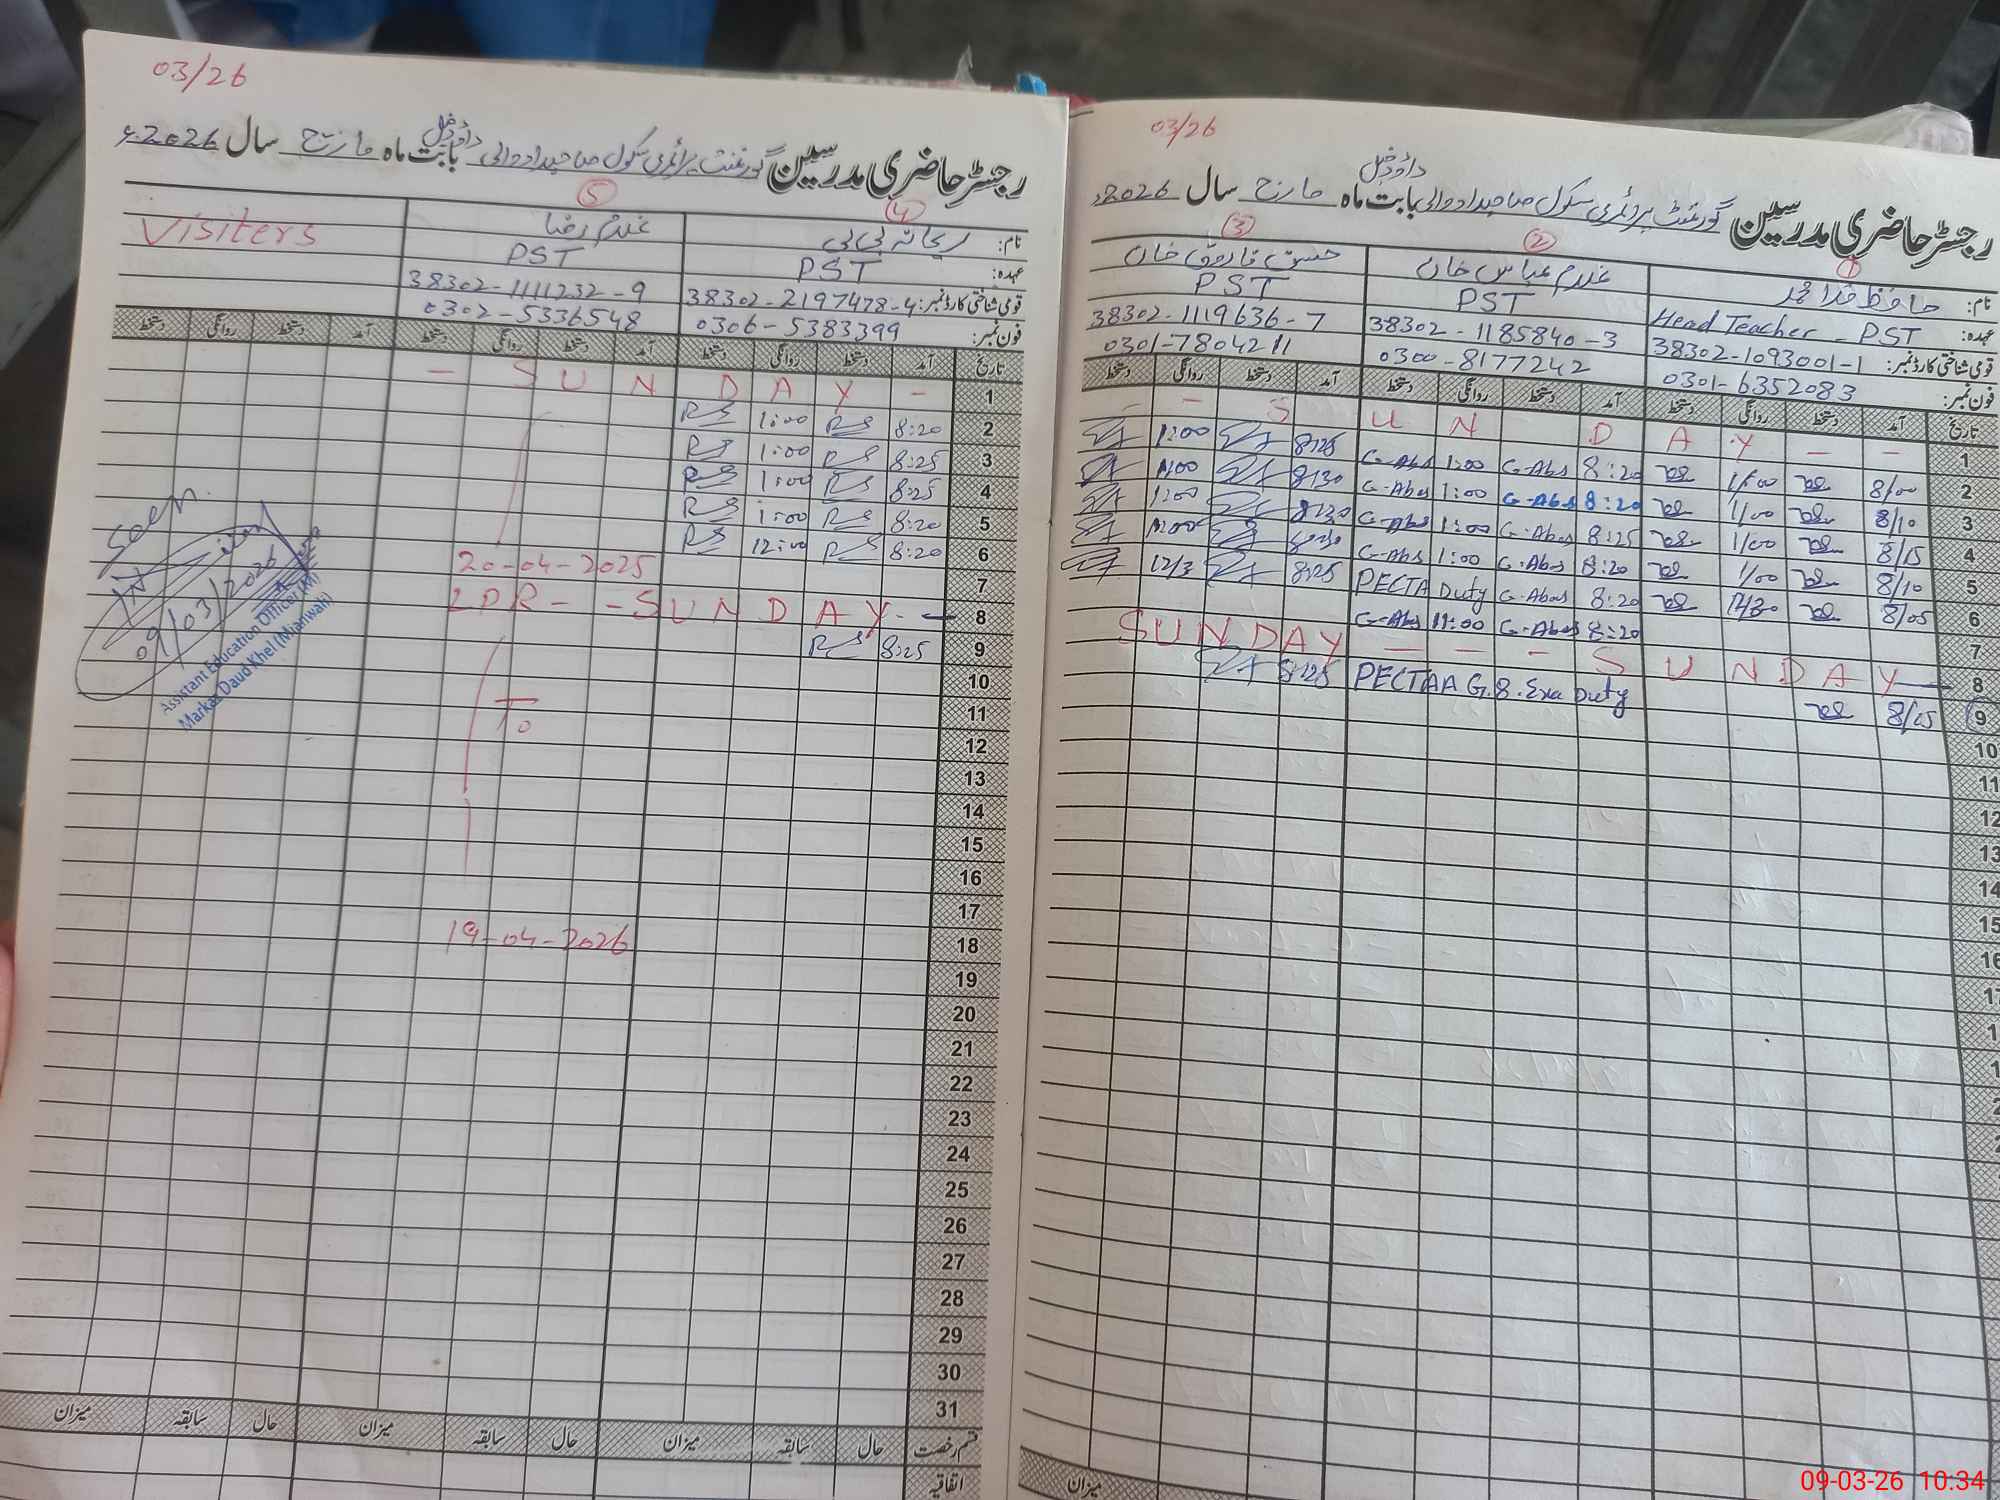 03/26
رجسٹر حاضری مدرسین گورنمنٹ پرائمری سکول صاحبدادوالی داؤدخیل بابت ماہ مارچ سال 2026ء
④ ⑤
نام: ریحانہ بی بی غلام رضا Visiters
عہدہ: PST PST
قومی شناختی کارڈ نمبر: 38302-2197478-4 38302-1111232-9
فون نمبر: 0306-5383399 0302-5336548
تاریخ آمد دستخط روانگی دستخط آمد دستخط روانگی دستخط آمد دستخط روانگی دستخط
1 - SUNDAY -
2 8:20 RS 1:00 RS
3 8:25 RS 1:00 RS
4 8:25 RS 1:00 RS
5 8:20 RS 1:00 RS
6 8:20 RS 12:00 RS
7 20-04-2025
8 LPR - - SUNDAY -
9 8:25 RS
10
11 To
12
13
14
15
16
17
18 19-04-2026
19
20
21
22
23
24
25
26
27
28
29
30
31
قسم رخصت حال سابقہ میزان حال سابقہ میزان حال سابقہ میزان
اتفاقیہ
Seen
09/03/2026
Assistant Education Officer (M)
Markaz Daud Khel (Mianwali)
03/26
رجسٹر حاضری مدرسین گورنمنٹ پرائمری سکول صاحبدادوالی داؤدخیل بابت ماہ مارچ سال 2026ء
① ② ③
نام: حافظ فدا محمد غلام عباس خان حسن فاروق خان
عہدہ: Head Teacher - PST PST PST
قومی شناختی کارڈ نمبر: 38302-1093001-1 38302-1185840-3 38302-1119636-7
فون نمبر: 0301-6352083 0300-8177242 0301-7804211
تاریخ آمد دستخط روانگی دستخط آمد دستخط روانگی دستخط آمد دستخط روانگی دستخط
1 - - SUNDAY - -
2 8/00 1/00 8:20 G-Abs 1:00 G-Abs 8:25 1:00
3 8/10 1/00 8:20 G-Abs 1:00 G-Abs 8:30 1:00
4 8/15 1/00 8:25 G-Abs 1:00 G-Abs 8:30 1:00
5 8/10 1/00 8:20 G-Abs 1:00 G-Abs 1:00
6 8/05 8:20 G-Abs PECTA Duty 8:25
7 8:20 G-Abs 11:00 G-Abs
8 SUNDAY - - - SUNDAY -
9 8/05 PECTAA G.8. Exa Duty 8:25
10
11
12
13
14
15
16
میزان
09-03-26 10:34